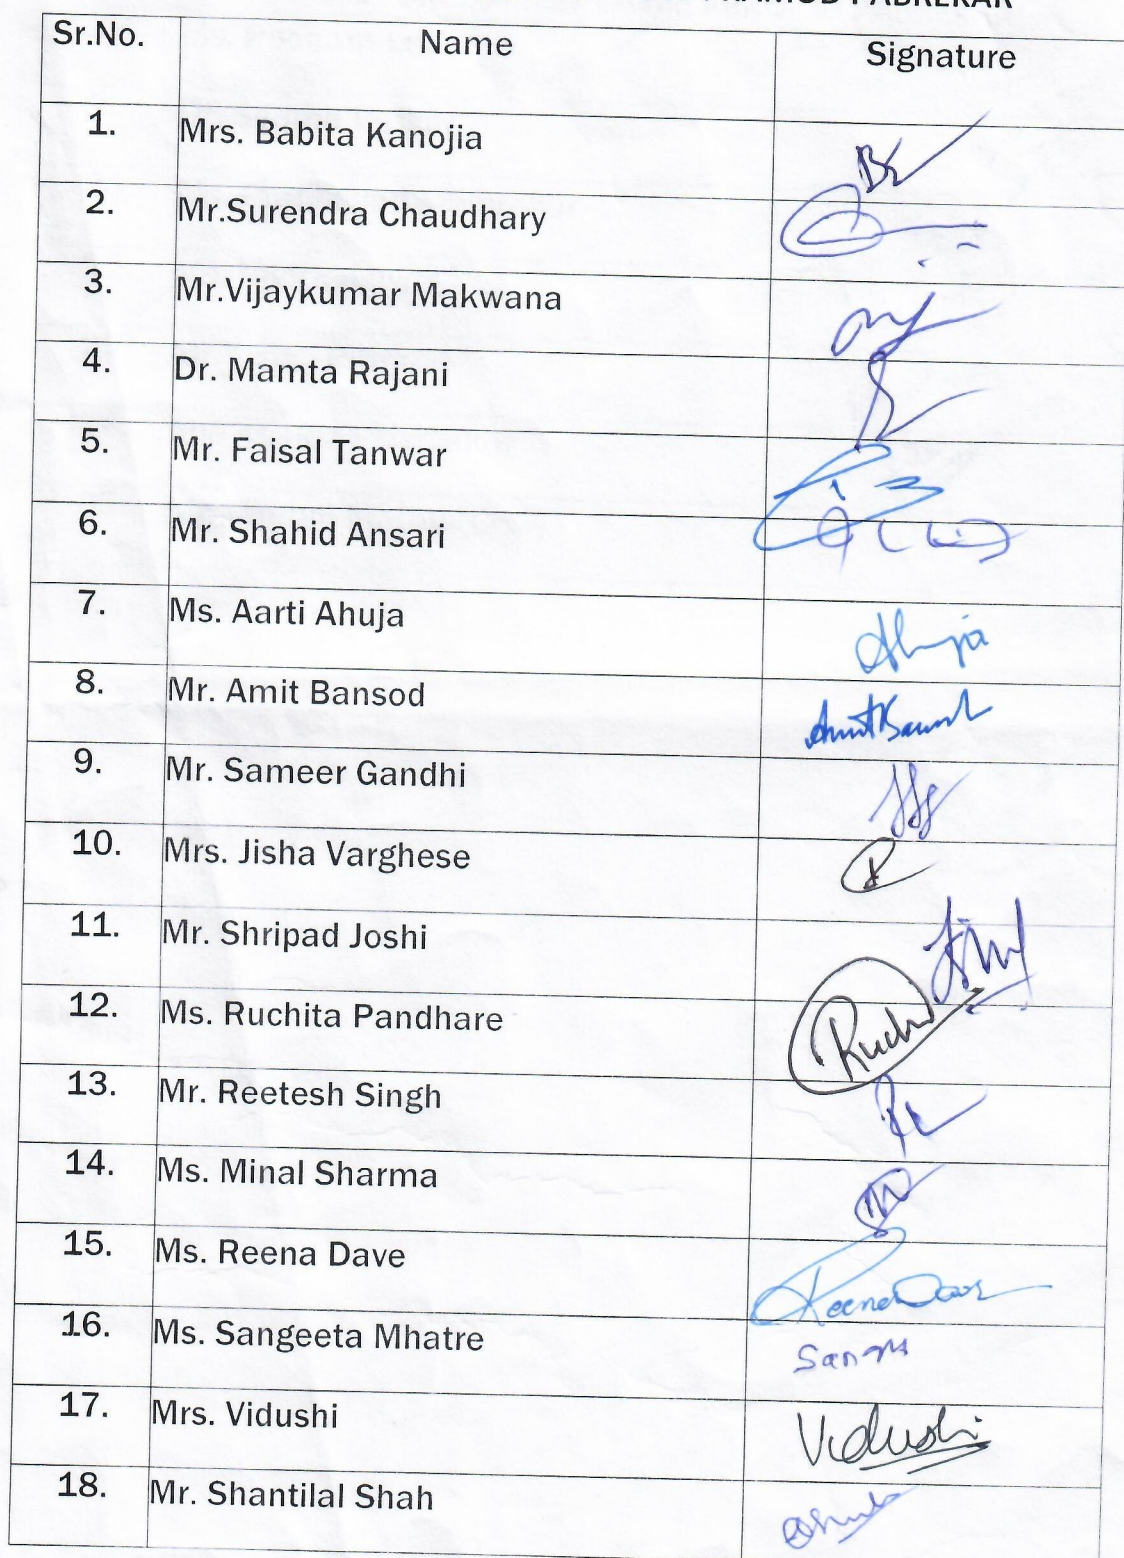 Sr.No. Name Signature
1. Mrs. Babita Kanojia BK
2. Mr.Surendra Chaudhary
3. Mr.Vijaykumar Makwana
4. Dr. Mamta Rajani
5. Mr. Faisal Tanwar
6. Mr. Shahid Ansari
7. Ms. Aarti Ahuja Ahuja
8. Mr. Amit Bansod
9. Mr. Sameer Gandhi
10. Mrs. Jisha Varghese
11. Mr. Shripad Joshi
12. Ms. Ruchita Pandhare Ruchi
13. Mr. Reetesh Singh
14. Ms. Minal Sharma
15. Ms. Reena Dave Reena Dave
16. Ms. Sangeeta Mhatre
17. Mrs. Vidushi Vidushi
18. Mr. Shantilal Shah